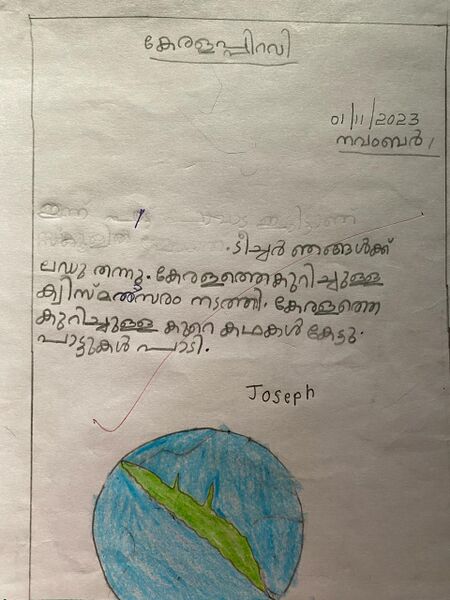 കേരളപ്പിറവി
01/11/2023
നവംബർ 1
ഇന്ന്
ടീച്ചർ ഞങ്ങൾക്ക്
ലഡു തന്നു. കേരളത്തെകുറിച്ചുള്ള
ക്വിസ്മത്സരം നടത്തി. കേരളത്തെ
കുറിച്ചുള്ള കുറെ കഥകൾ കേട്ടു.
പാട്ടുകൾ പാടി.
Joseph